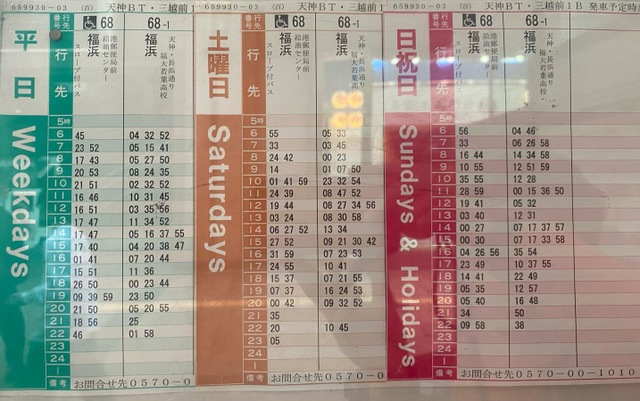 659930-03 (百) 天神BT・三越前1
行先番号 68 68-1
平日 Weekdays
行先
福浜 港郵便局前 給油センター スロープ付バス
福浜 天神・長浜通り 福大若葉高校
5時
6 45 04 32 52
7 23 52 05 15 41
8 17 43 05 27 50
9 20 53 08 24 35
10 21 51 02 32 52
11 16 46 10 31 45
12 16 51 03 35 56
13 17 47 11 34 52
14 17 47 05 16 37 55
15 17 40 04 20 38 47
16 01 41 07 20 44
17 15 51 11 36
18 26 50 00 23 44
19 09 39 59 23 50
20 21 50 05 20 55
21 18 56 25
22 46 01 58
23
24
1
備考 お問合せ先0570-0
659930-03 (百) 天神BT・三越前1
行先番号 68 68-1
土曜日 Saturdays
行先
福浜 港郵便局前 給油センター スロープ付バス
福浜 天神・長浜通り 福大若葉高校
5時
6 55 05 33
7 33 03 45
8 24 42 00 23
9 14 01 07 50
10 01 41 59 23 32 54
11 24 39 08 47 52
12 19 44 08 27 34 56
13 03 24 08 30 58
14 06 27 52 13 34
15 27 52 09 21 30 42
16 31 59 07 23 53
17 24 55 10 41
18 15 37 07 21 55
19 07 37 16 24 53
20 00 42 09 32 52
21 35
22 20 10 45
23 05
24
1
備考 お問合せ先0570-0
659930-03 (百) 天神BT・三越前1B 発車予定時
行先番号 68 68-1
日祝日 Sundays & Holidays
行先
福浜 港郵便局前 給油センター スロープ付バス
福浜 天神・長浜通り 福大若葉高校
5時
6 56 04 46
7 33 06 26 58
8 16 44 14 34 58
9 10 55 12 51 59
10 35 55 12 28
11 28 59 00 15 36 50
12 19 41 05 32
13 03 40 12 31
14 00 27 07 17 37 57
15 00 30 07 17 33 58
16 04 26 56 35 54
17 23 49 10 37 55
18 14 41 22 49
19 05 35 12 57
20 05 40 16 48
21 34 50
22 09 58 38
23
24
1
備考 お問合せ先0570-00-1010